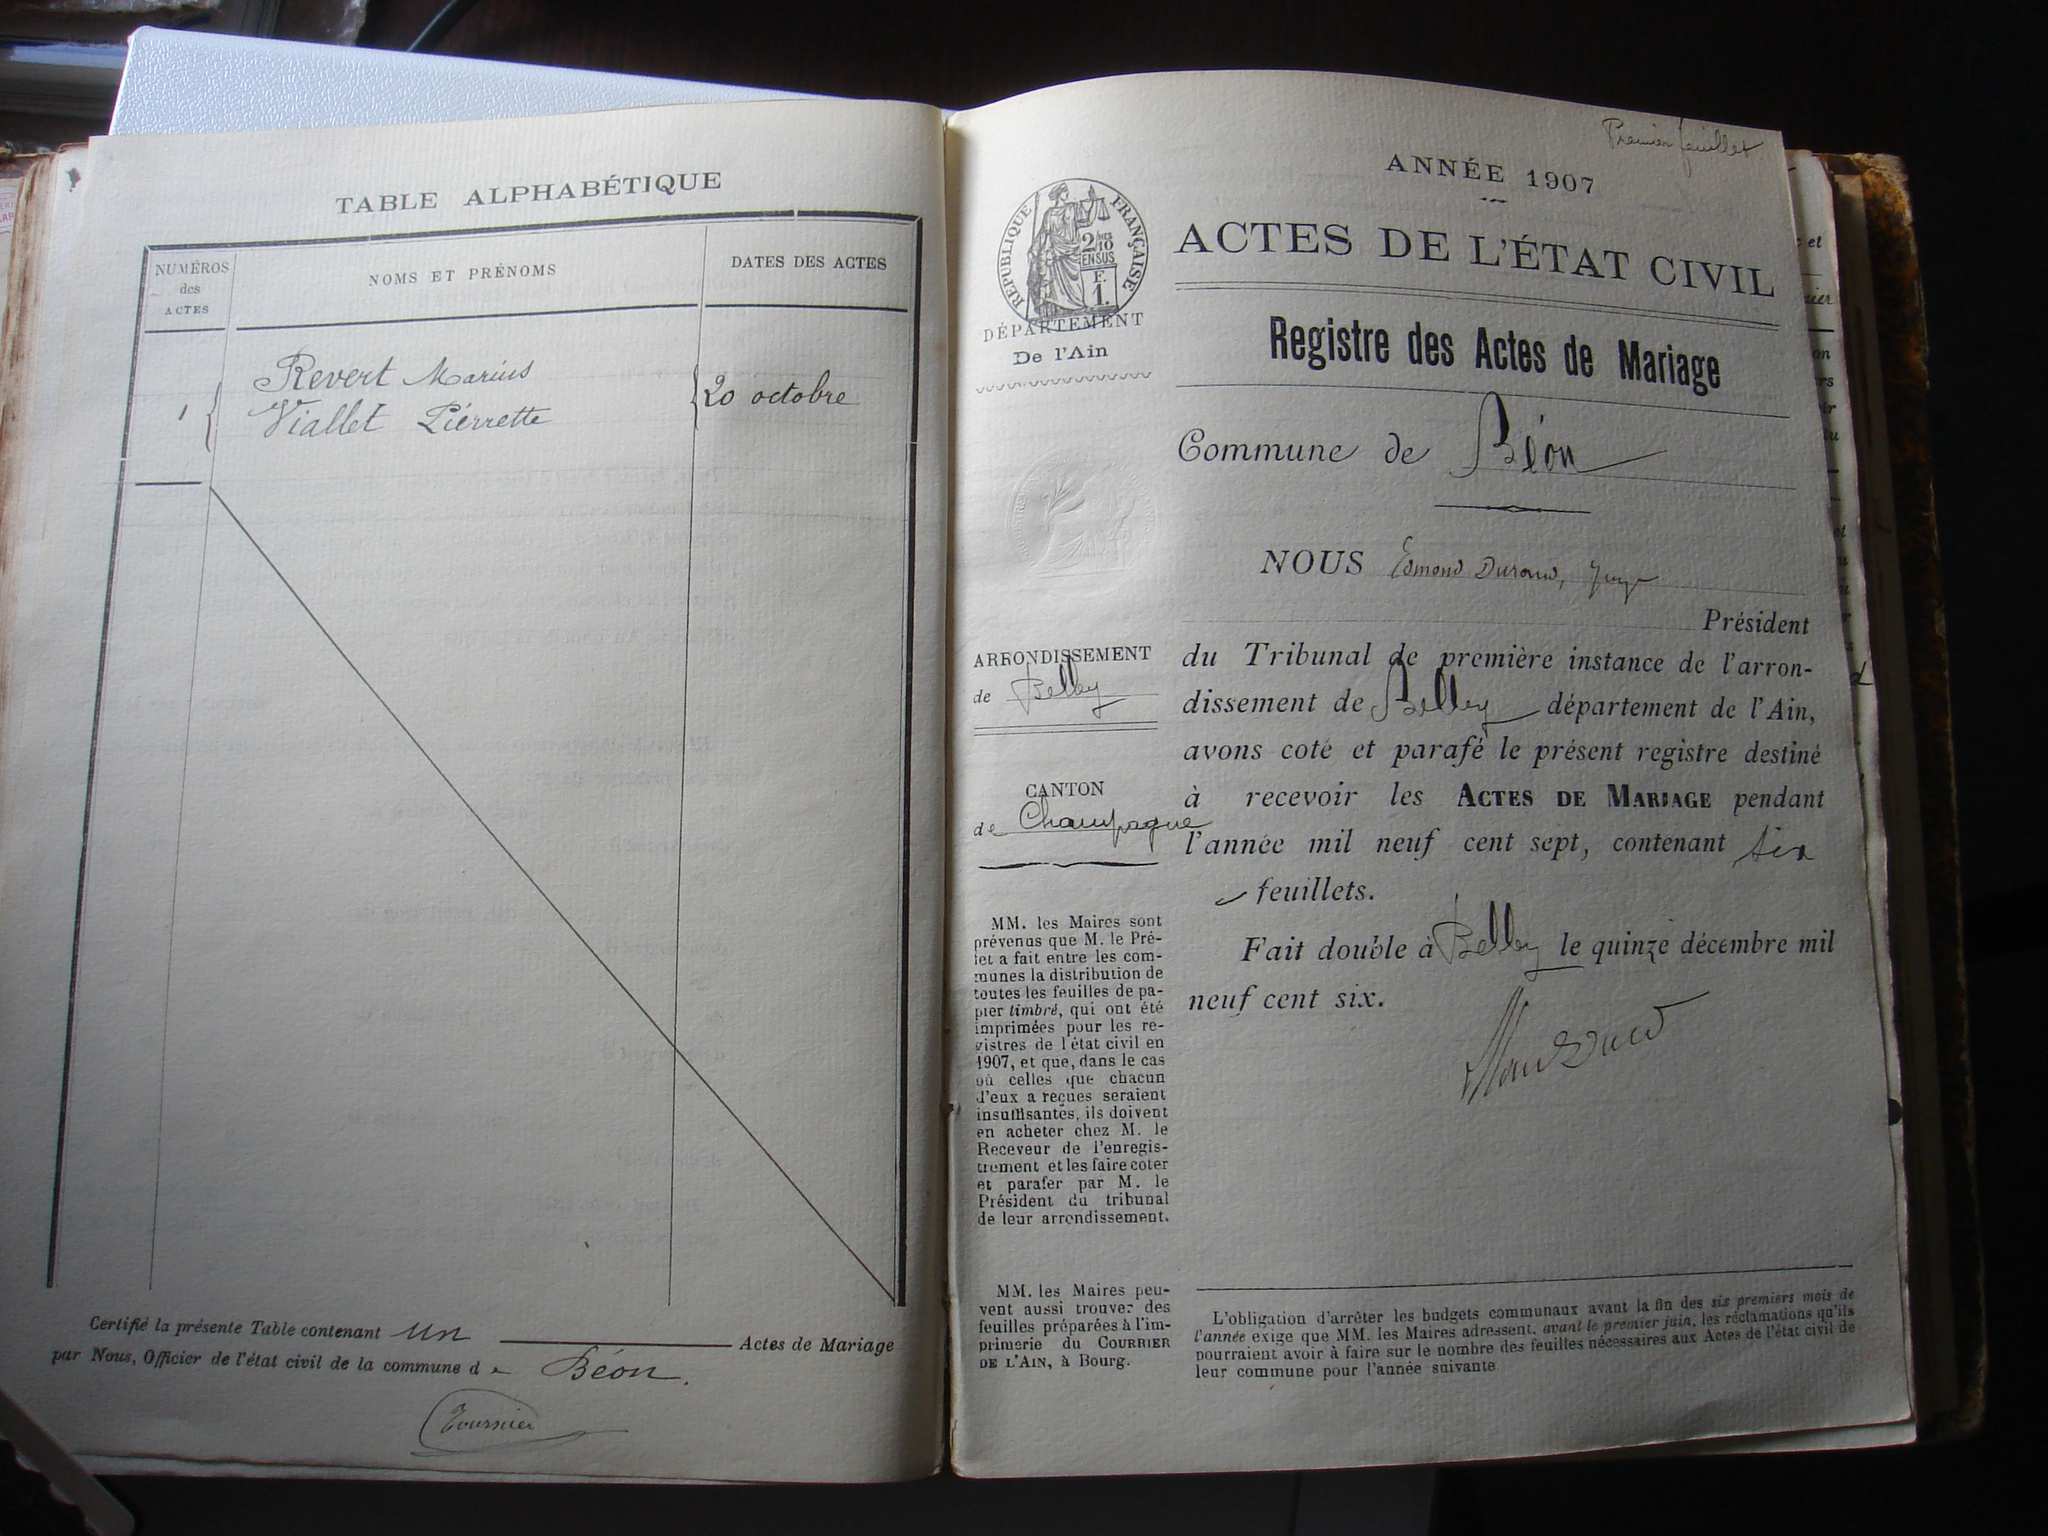 TABLE ALPHABÉTIQUE
NUMÉROS
des
ACTES
NOMS ET PRÉNOMS
DATES DES ACTES
1
Revert Marius
Viallet Pierrette
20 octobre
Certifié la présente Table contenant un Actes de Mariage
par Nous, Officier de l'état civil de la commune de Béon.
Tournier
Premier feuillet
ANNÉE 1907
ACTES DE L'ÉTAT CIVIL
Registre des Actes de Mariage
Commune de Béon
RÉPUBLIQUE FRANÇAISE
2/10
EN SUS
F.
1.
DÉPARTEMENT
De l'Ain
ARRONDISSEMENT
de Belley
CANTON
de Champagne
MM. les Maires sont
prévenus que M. le Pré-
fet a fait entre les com-
munes la distribution de
toutes les feuilles de pa-
pier timbré, qui ont été
imprimées pour les re-
gistres de l'état civil en
1907, et que, dans le cas
où celles que chacun
d'eux a reçues seraient
insuffisantes, ils doivent
en acheter chez M. le
Receveur de l'enregis-
trement et les faire coter
et parafer par M. le
Président du tribunal
de leur arrondissement.
MM. les Maires peu-
vent aussi trouver des
feuilles préparées à l'im-
primerie du COURRIER
DE L'AIN, à Bourg.
NOUS Edmond Durand, Juge
Président
du Tribunal de première instance de l'arron-
dissement de Belley département de l'Ain,
avons coté et parafé le présent registre destiné
à recevoir les ACTES DE MARIAGE pendant
l'année mil neuf cent sept, contenant six
feuillets.
Fait double à Belley le quinze décembre mil
neuf cent six.
L'obligation d'arrêter les budgets communaux avant la fin des six premiers mois de
l'année exige que MM. les Maires adressent, avant le premier juin, les réclamations qu'ils
pourraient avoir à faire sur le nombre des feuilles nécessaires aux Actes de l'état civil de
leur commune pour l'année suivante